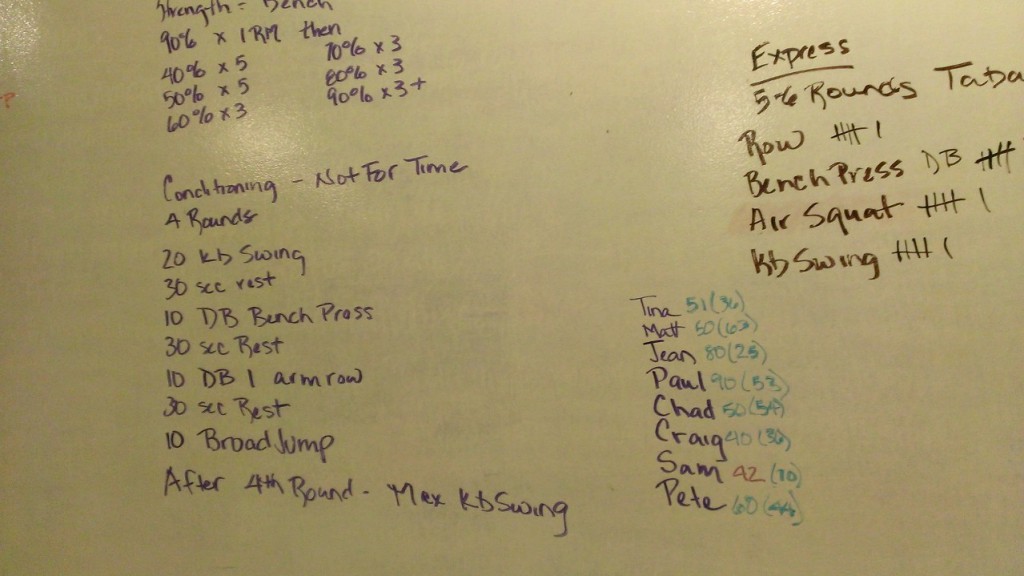 Strength = Bench
90% x 1RM then
40% x 5
50% x 5
60% x 3
70% x 3
80% x 3
90% x 3+
Conditioning - Not For Time
4 Rounds
20 kb Swing
30 sec rest
10 DB Bench Press
30 sec Rest
10 DB 1 arm row
30 sec Rest
10 Broad Jump
After 4th Round - Max Kb Swing
Express
5-6 Rounds Taba
Row 卌 |
Bench Press DB 卌
Air Squat 卌 |
Kb Swing 卌 |
Tina 51 (36)
Matt 50 (63)
Jean 80 (25)
Paul 90 (53)
Chad 50 (54)
Craig 40 (36)
Sam 42 (70)
Pete 60 (44)